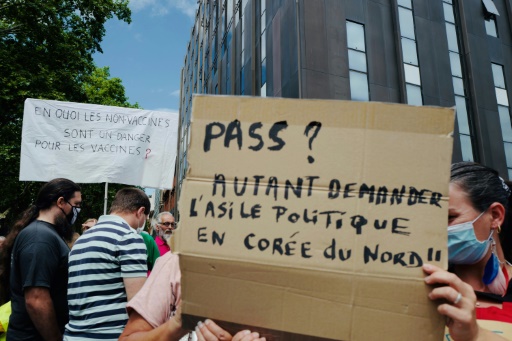 EN QUOI LES NON-VACCINES
SONT UN DANGER
POUR LES VACCINES ?
PASS ?
AUTANT DEMANDER
L'ASILE POLITIQUE
EN CORÉE DU NORD !!